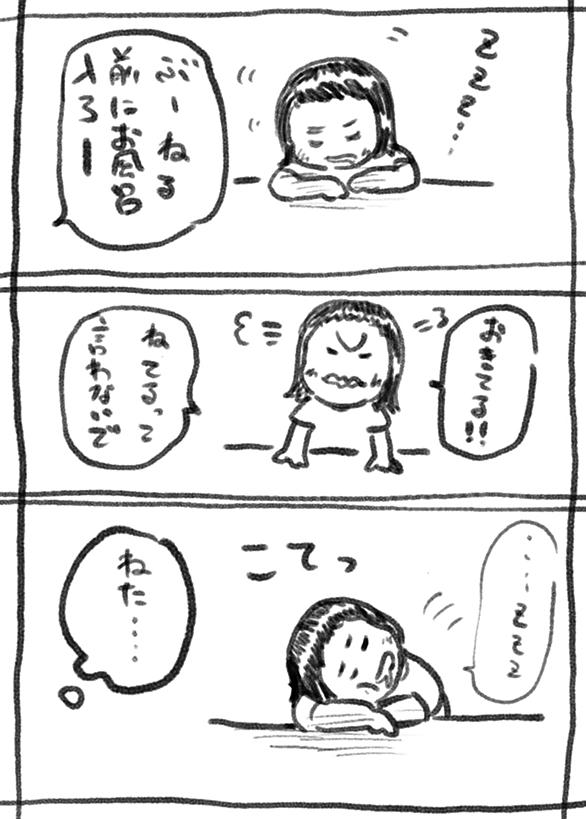 zzz…
ぶーねる
前にお風呂
入ろー
おきてる!!
ねてるって
言わないで
……zzz
こてっ
ねた……